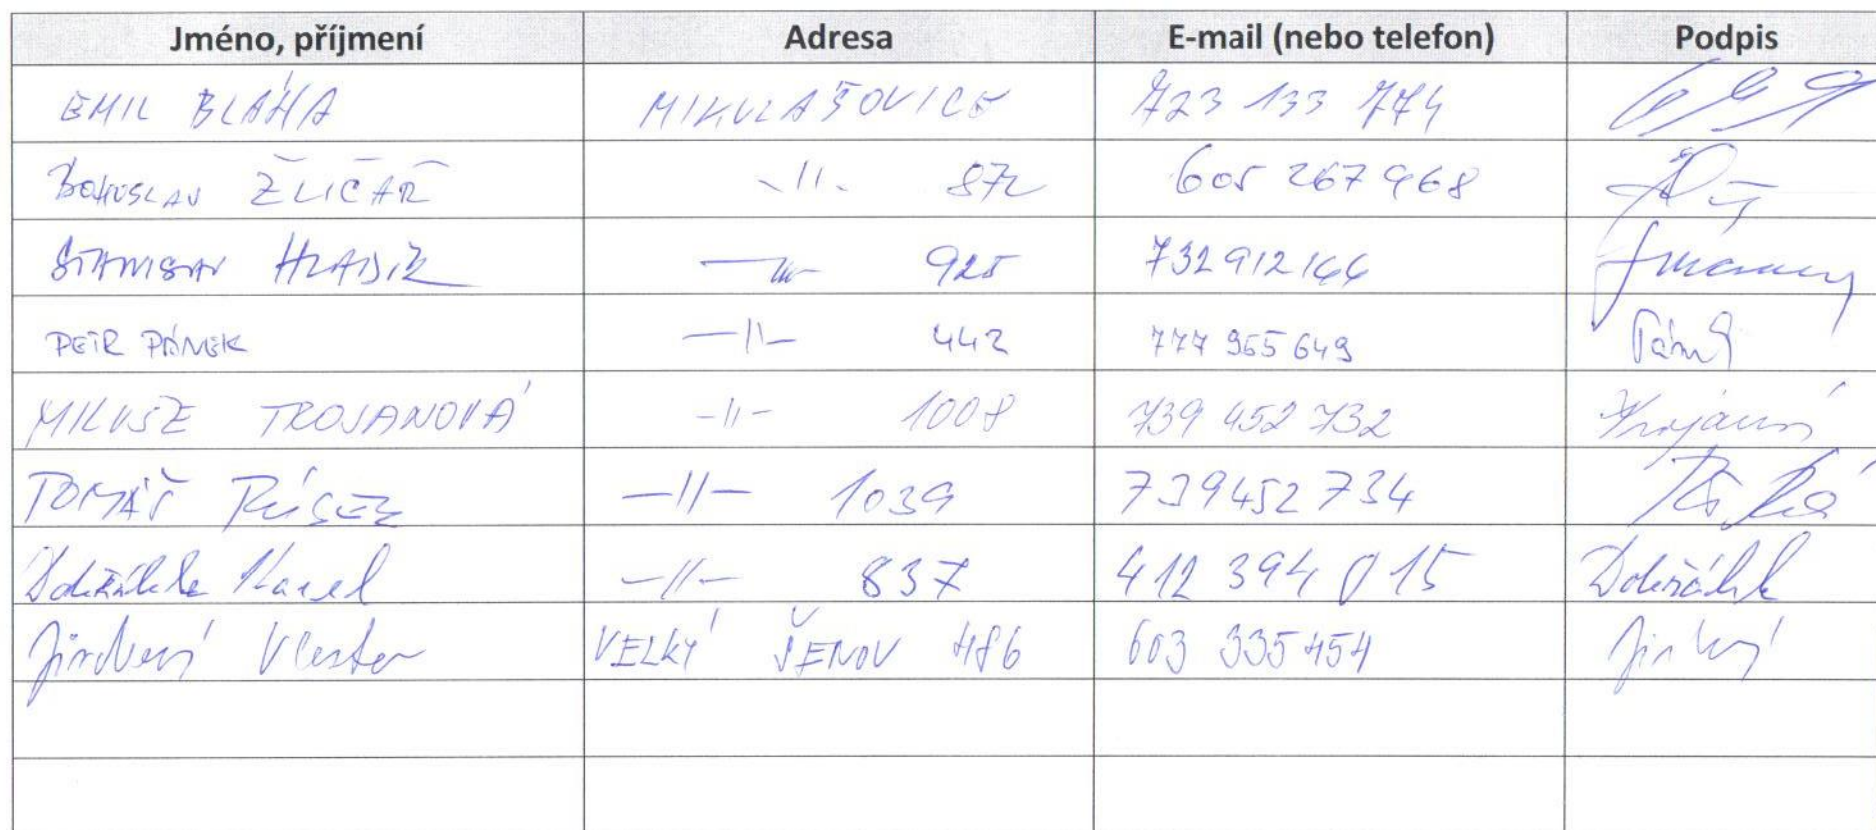 Jméno, příjmení Adresa E-mail (nebo telefon) Podpis
EMIL BLÁHA MIKULÁŠOVICE 723 133 774
BOHUSLAV ŽLIČAŘ -11- 872 605 267 968
STANISLAV HLADÍK -11- 925 732 912 166
PETR PÁNEK -11- 442 777 965 649
MILUŠE TROJANOVÁ -11- 1008 739 452 732
TOMÁŠ -11- 1039 739452 734
Karel -11- 837 412 394 015
VELKÝ ŠENOV 486 603 335 454